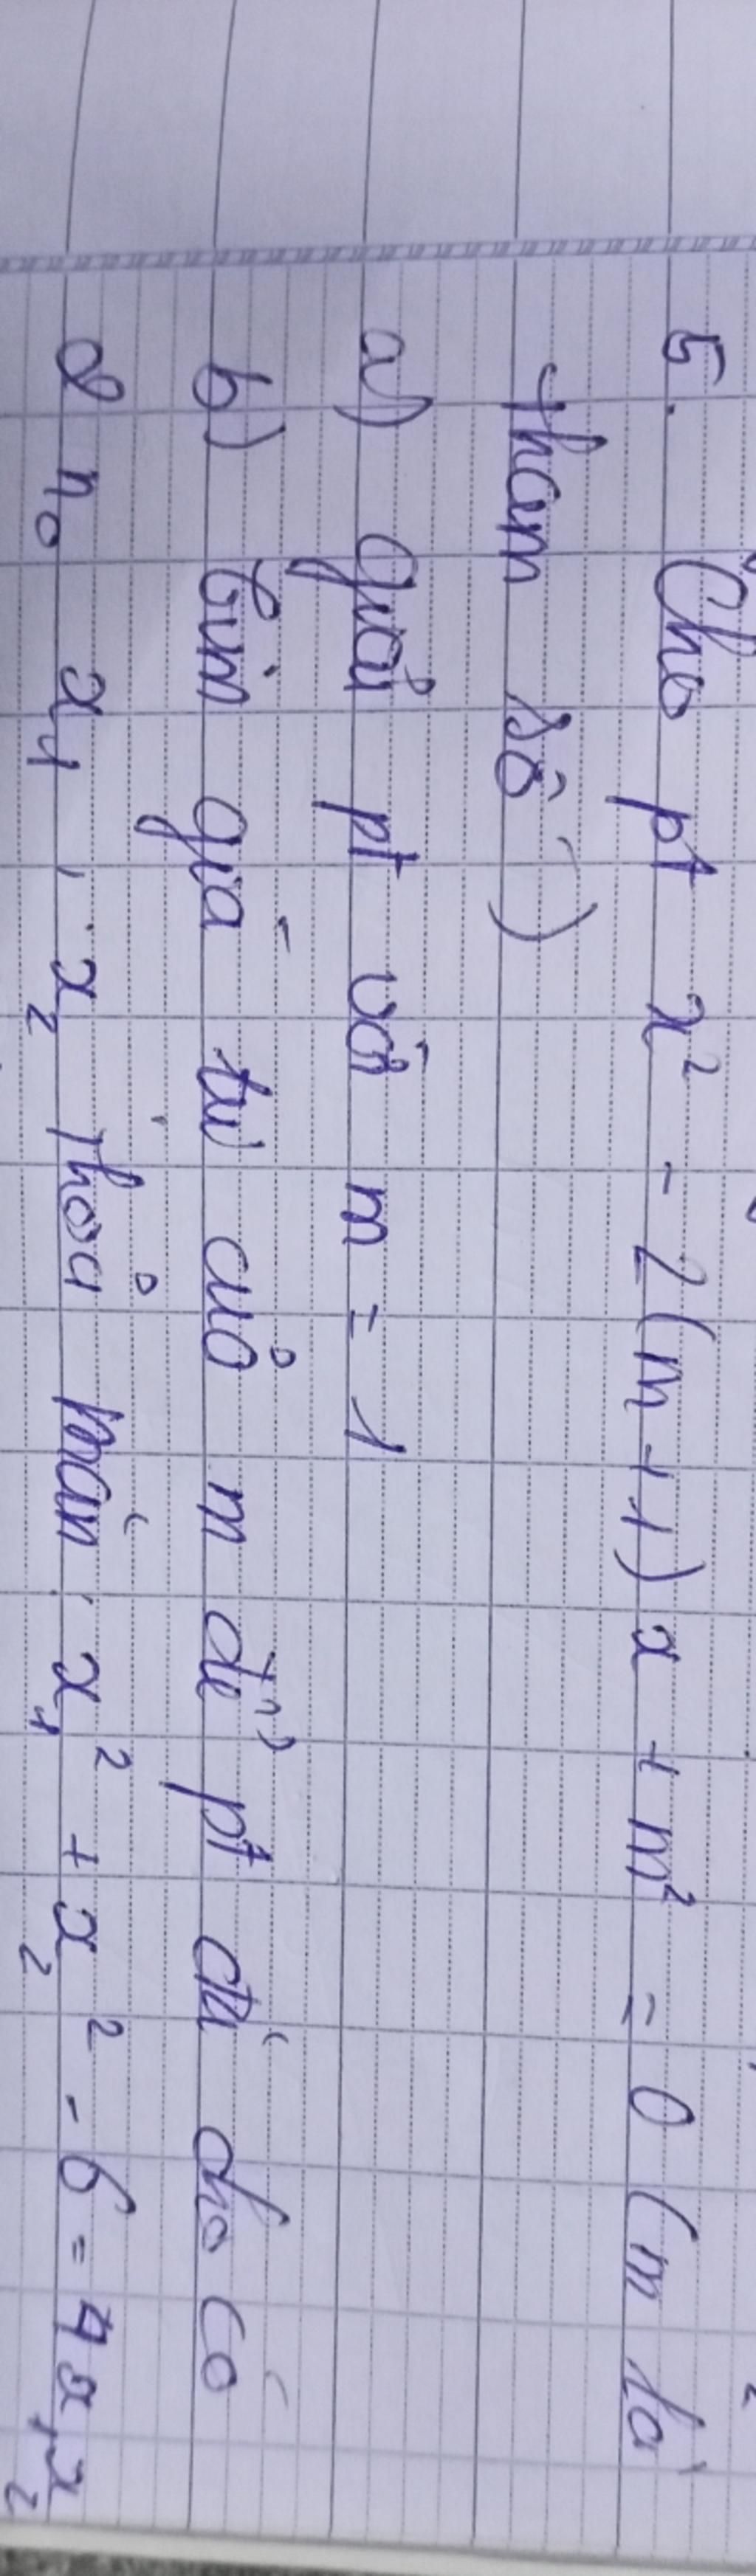 5. Cho pt x² - 2(m+1)x + m² = 0 (m là
tham số)
a) giải pt với m = 1
b) tìm giá trị của m để pt đã cho có
2 n₀ x₁, x₂ thỏa mãn x₁² + x₂² - 6 = 4x₁x₂